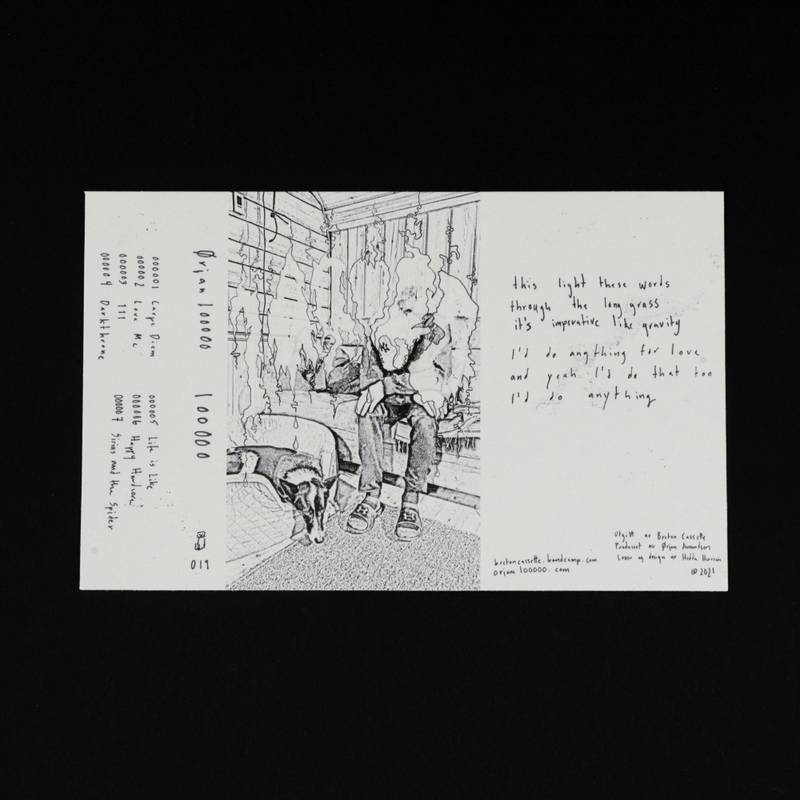 000001 Carpe Diem
000002 Love Me
000003 111
000004 Darkthrone
000005 Life is Like
000006 Happy Hardcore
000007 Sirius and the Spider
Ørjan 100000 100000
019
this light these words
through the long grass
it's imperative like gravity
I'd do anything for love
and yeah I'd do that too
I'd do anything
bretoncassette.bandcamp.com
orjan100000.com
Utgitt av Breton Cassette
Produsert av Ørjan Amundsen
Cover og design av Hedda
© 2021